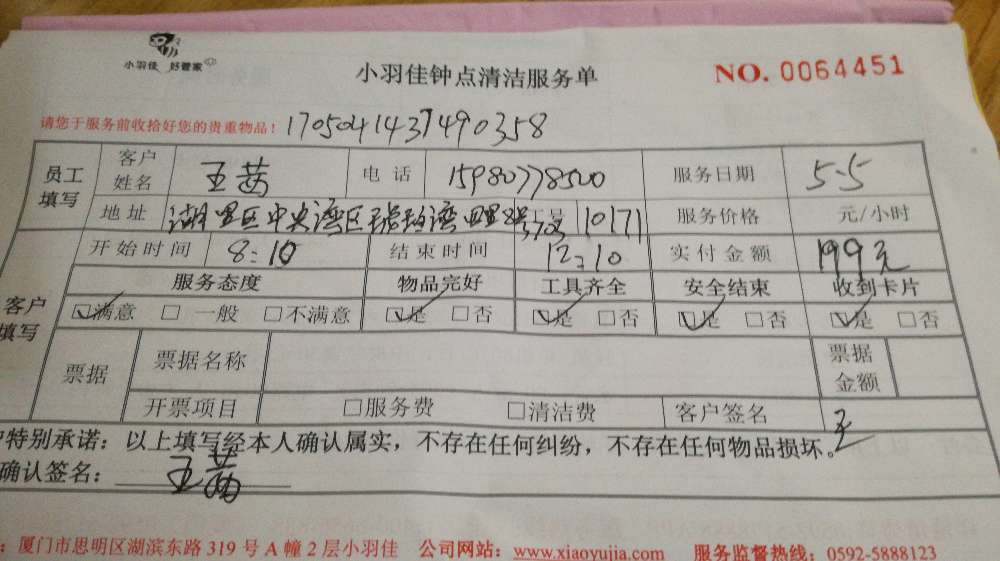 小羽佳 好管家
小羽佳钟点清洁服务单
NO. 0064451
请您于服务前收拾好您的贵重物品! 1705041437490358
员工填写 客户姓名 王茜 电话 15980778500 服务日期 5-5
地址 湖里区中央湾区 工号 10171 服务价格 元/小时
客户填写 开始时间 8:10 结束时间 12:10 实付金额 199元
服务态度 物品完好 工具齐全 安全结束 收到卡片
☑满意 □一般 □不满意 ☑是 □否 ☑是 □否 ☑是 □否 ☑是 □否
票据 票据名称 票据金额
开票项目 □服务费 □清洁费 客户签名 王
特别承诺:以上填写经本人确认属实,不存在任何纠纷,不存在任何物品损坏。
确认签名: 王茜
:厦门市思明区湖滨东路 319 号 A 幢 2 层小羽佳 公司网站:www.xiaoyujia.com 服务监督热线:0592-5888123